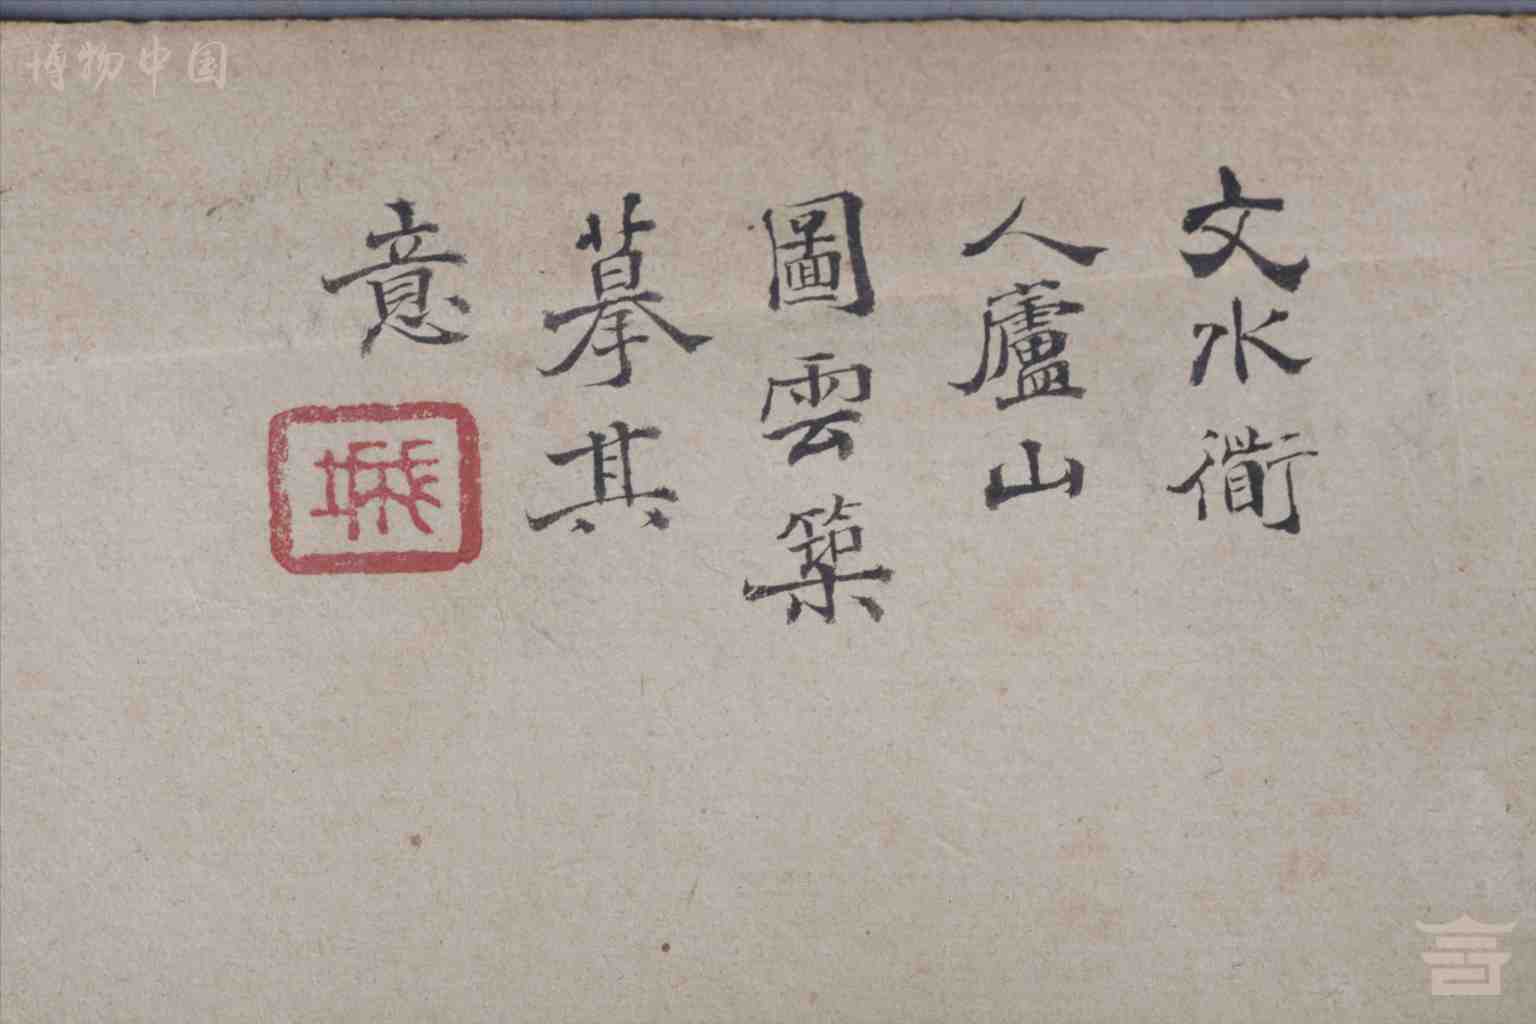 博物中国
文水衜
人廬山
圖雲築
摹其
意